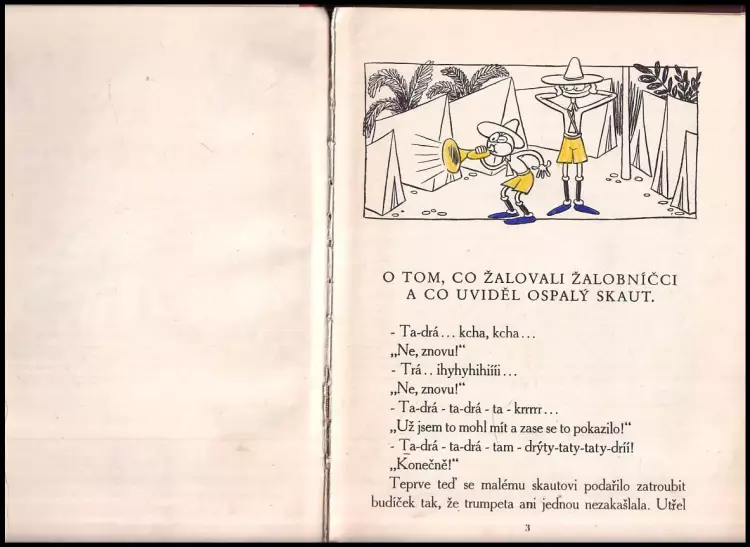 O TOM, CO ŽALOVALI ŽALOBNÍČCI
A CO UVIDĚL OSPALÝ SKAUT.
- Ta-drá... kcha, kcha...
„Ne, znovu!“
- Trá.. ihyhyhihiíii...
„Ne, znovu!“
- Ta-drá - ta-drá - ta - krrrrr...
„Už jsem to mohl mít a zase se to pokazilo!“
- Ta-drá - ta-drá - tam - drýty-taty-taty-dríí!
„Konečně!“
Teprve teď se malému skautovi podařilo zatroubit
budíček tak, že trumpeta ani jednou nezakašlala. Utřel
3